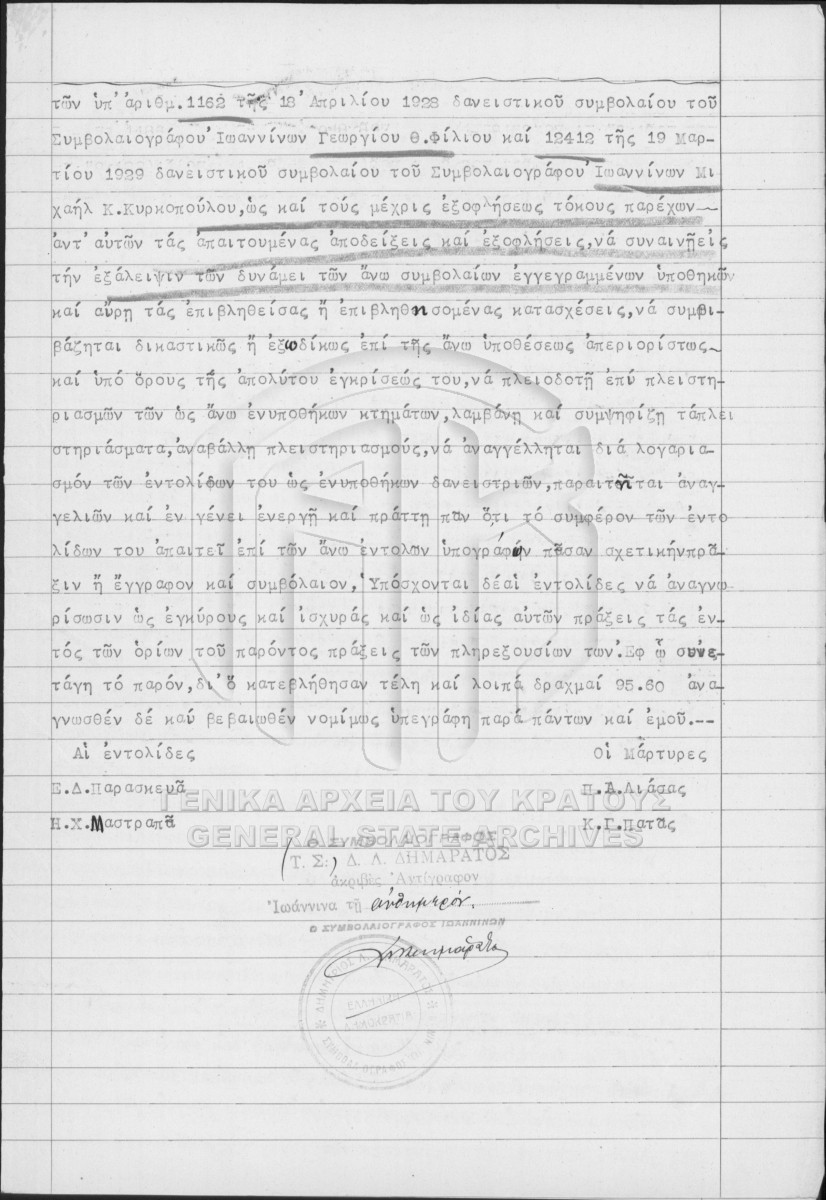 τῶν ὑπ' ἀριθμ.1162 τῆς 18' Απριλίου 1928 δανειστικοῦ συμβολαίου τοῦ
Συμβολαιογράφου' Ιωαννίνων Γεωργίου Θ.Φίλιου καί 12412 τῆς 19 Μαρ-
τίου 1929 δανειστικοῦ συμβολαίου τοῦ Συμβολαιογράφου' Ιωαννίνων Μι
χαήλ Κ.Κυρκοπούλου,ὡς καί τούς μέχρις ἐξοφλήσεως τόκους παρέχων
ἀντ' αὐτῶν τάς ἀπαιτουμένας ἀποδείξεις καί ἐξοφλήσεις,νά συναινῇεἰς
τήν ἐξάλειψιν τῶν δυνάμει τῶν ἄνω συμβολαίων ἐγγεγραμμένων ὑποθηκῶν
καί αὔρῃ τάς ἐπιβληθείσας ἤ ἐπιβληθησομένας κατασχέσεις,νά συμβι-
βάζηται δικαστικῶς ἤ ἐξωδίκως ἐπί τῆς ἄνω ὑποθέσεως ἀπεριορίστως
καί ὑπό ὅρους τῆς ἀπολύτου ἐγκρίσεώς του,νά πλειοδοτῇ ἐπύ πλειστη-
ριασμῶν τῶν ὡς ἄνω ἐνυποθήκων κτημάτων,λαμβάνῃ καί συμψηφίζῃ τάπλει
στηριάσματα,ἀναβάλλῃ πλειστηριασμούς,νά ἀναγγέλληται διά λογαρια-
σμόν τῶν ἐντολίδων του ὡς ἐνυποθήκων δανειστριῶν,παραιτῆται ἀναγ-
γελιῶν καί ἐν γένει ἐνεργῇ καί πράττῃ πᾶν ὅτι τό συμφέρον τῶν ἐντο
λίδων του ἀπαιτεῖ ἐπί τῶν ἄνω ἐντολῶν ὑπογράφων πᾶσαν σχετικήνπρᾶ
ξιν ἤ ἔγγραφον καί συμβόλαιον,'Υπόσχονται δέαἱ ἐντολίδες νά ἀναγνω
ρίσωσιν ὡς ἐγκύρους καί ἰσχυράς καί ὡς ἰδίας αὐτῶν πράξεις τάς ἐν-
τός τῶν ὁρίων τοῦ παρόντος πράξεις τῶν πληρεξουσίων των.'Εφ ᾧ συνε-
τάγη τό παρόν,δι' ὅ κατεβλήθησαν τέλη καί λοιπά δραχμαί 95.60 ἀνα-
γνωσθέν δέ καύ βεβαιωθέν νομίμως ὑπεγράφη παρά πάντων καί ἐμοῦ.--
Αἱ ἐντολίδες Οἱ Μάρτυρες
Ε.Δ.Παρασκευᾶ Π.Α.Λιάσας
Η.Χ.Μαστραπᾶ Κ.Γ.Πατᾶς
ΓΕΝΙΚΑ ΑΡΧΕΙΑ ΤΟΥ ΚΡΑΤΟΥΣ
GENERAL STATE ARCHIVES
Ο ΣΥΜΒΟΛΑΙΟΓΡΑΦΟΣ
(Τ. Σ:) Δ. Λ. ΔΗΜΑΡΑΤΟΣ
ἀκριβές Ἀντίγραφον
Ἰωάννινα τῇ αὐθημερόν.
Ο ΣΥΜΒΟΛΑΙΟΓΡΑΦΟΣ ΙΩΑΝΝΙΝΩΝ
ΕΛΛΗΝΙΚΗ
ΔΗΜΟΚΡΑΤΙΑ